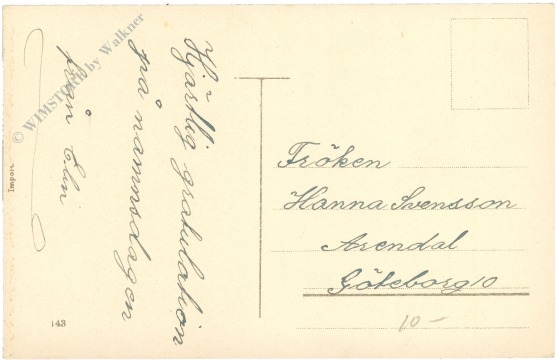 Hjärtlig gratulation
på namnsdagen
från Elin
Fröken
Hanna Svensson
Arendal
Göteborg 10
10-
Import.
143
© WIMSTORE by Walkner